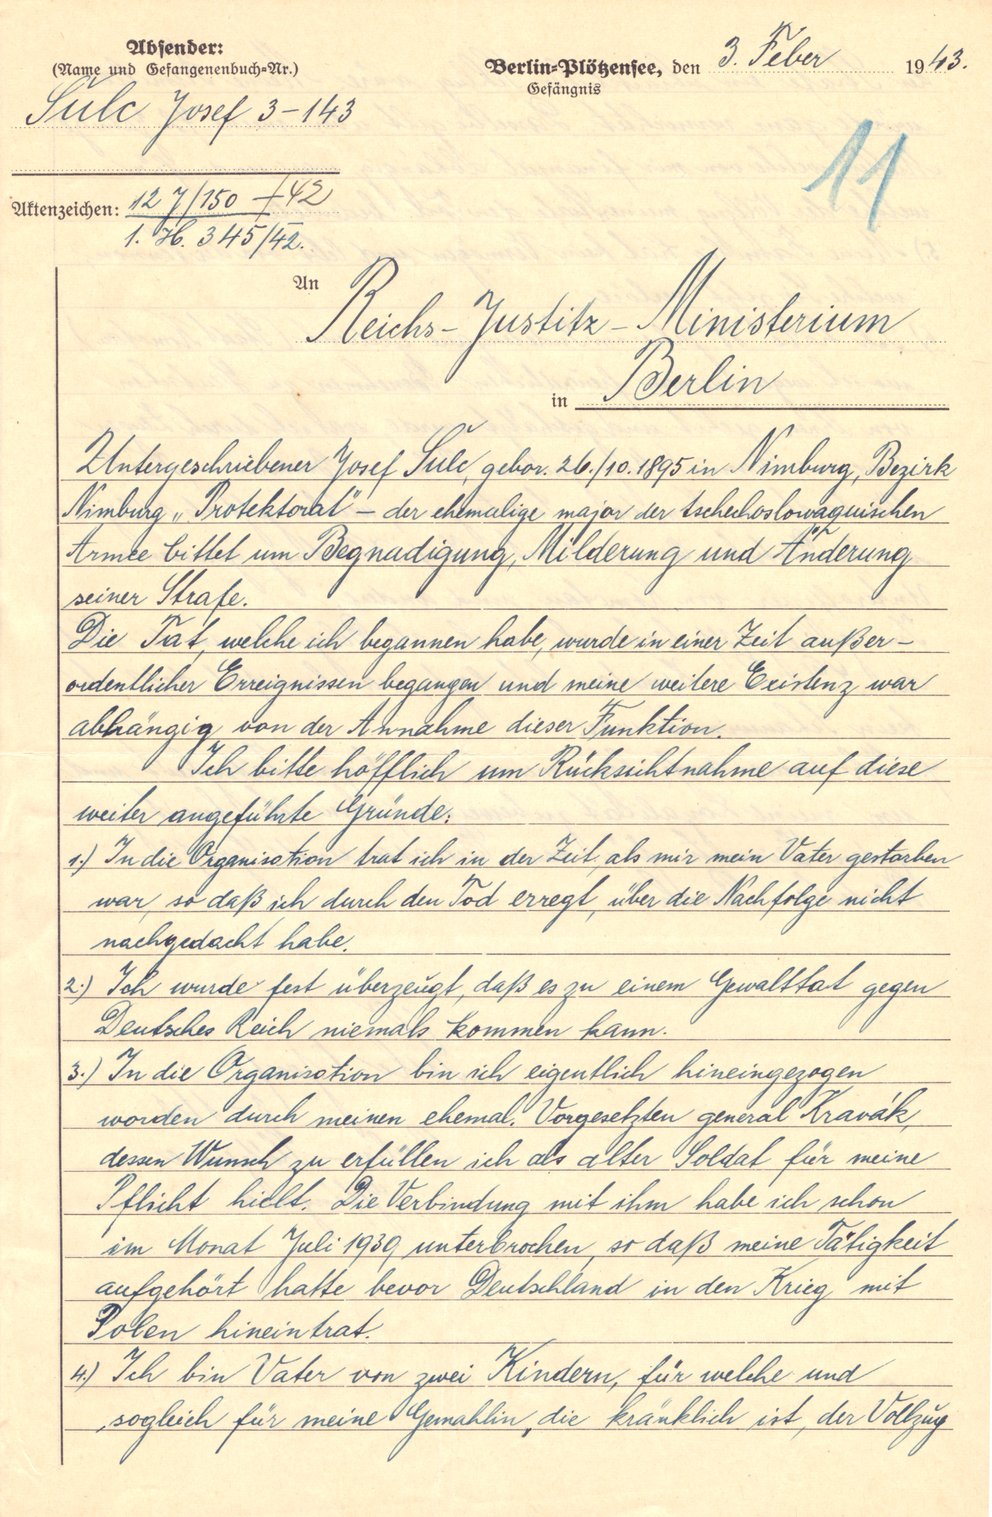 Absender:
(Name und Gefangenenbuch-Nr.)
Berlin-Plötzensee, den 3. Feber 1943.
Gefängnis
Šulc Josef 3-143
11
Aktenzeichen: 12 J/150 - 42
1. H. 345/42.
An
Reichs-Justitz-Ministerium
in Berlin
Untergeschriebener Josef Šulc, gebor. 26./10. 1895 in Nimburg, Bezirk
Nimburg „Protektorat" - der ehemalige major der tschechoslowaquischen
Armee bittet um Begnadigung, Milderung und Änderung
seiner Strafe.
Die Tat, welche ich begannen habe, wurde in einer Zeit außer-
ordentlicher Erreignissen begangen und meine weitere Existenz war
abhängig von der Annahme dieser Funktion.
Ich bitte höfflich um Rücksichtnahme auf diese
weiter angeführte Gründe:
1.) In die Organisation trat ich in der Zeit, als mir mein Vater gestorben
war, so daß ich durch den Tod erregt, über die Nachfolge nicht
nachgedacht habe.
2.) Ich wurde fest überzeugt, daß es zu einem Gewalttat gegen
Deutsches Reich niemals kommen kann.
3.) In die Organisation bin ich eigentlich hineingezogen
worden durch meinen ehemal. Vorgesetzten general Kravák,
dessen Wunsch zu erfüllen ich als alter Soldat für meine
Pflicht hielt. Die Verbindung mit ihm habe ich schon
im Monat Juli 1939 unterbrochen, so daß meine Tätigkeit
aufgehört hatte bevor Deutschland in den Krieg mit
Polen hineintrat.
4.) Ich bin Vater von zwei Kindern, für welche und
sogleich für meine Gemahlin, die kränklich ist, der Vollzug